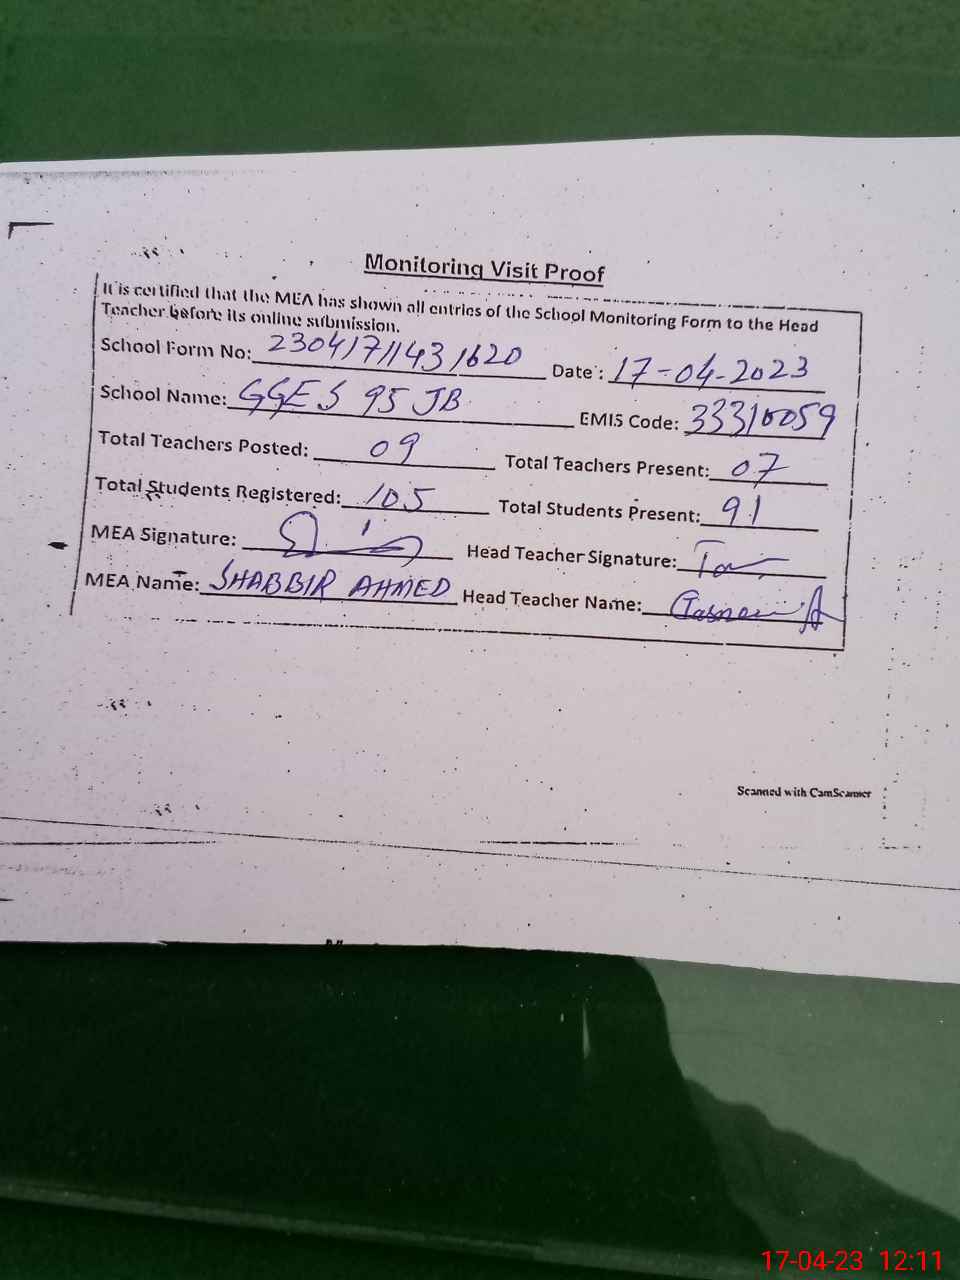 Monitoring Visit Proof
It is certified that the MEA has shown all entries of the School Monitoring Form to the Head
Teacher before its online submission.
School Form No: 23041711431620 Date: 17-04-2023
School Name: GGES 95 JB EMIS Code: 33310059
Total Teachers Posted: 09 Total Teachers Present: 07
Total Students Registered: 105 Total Students Present: 91
MEA Signature: Head Teacher Signature:
MEA Name: SHABBIR AHMED Head Teacher Name:
Scanned with CamScanner
17-04-23 12:11